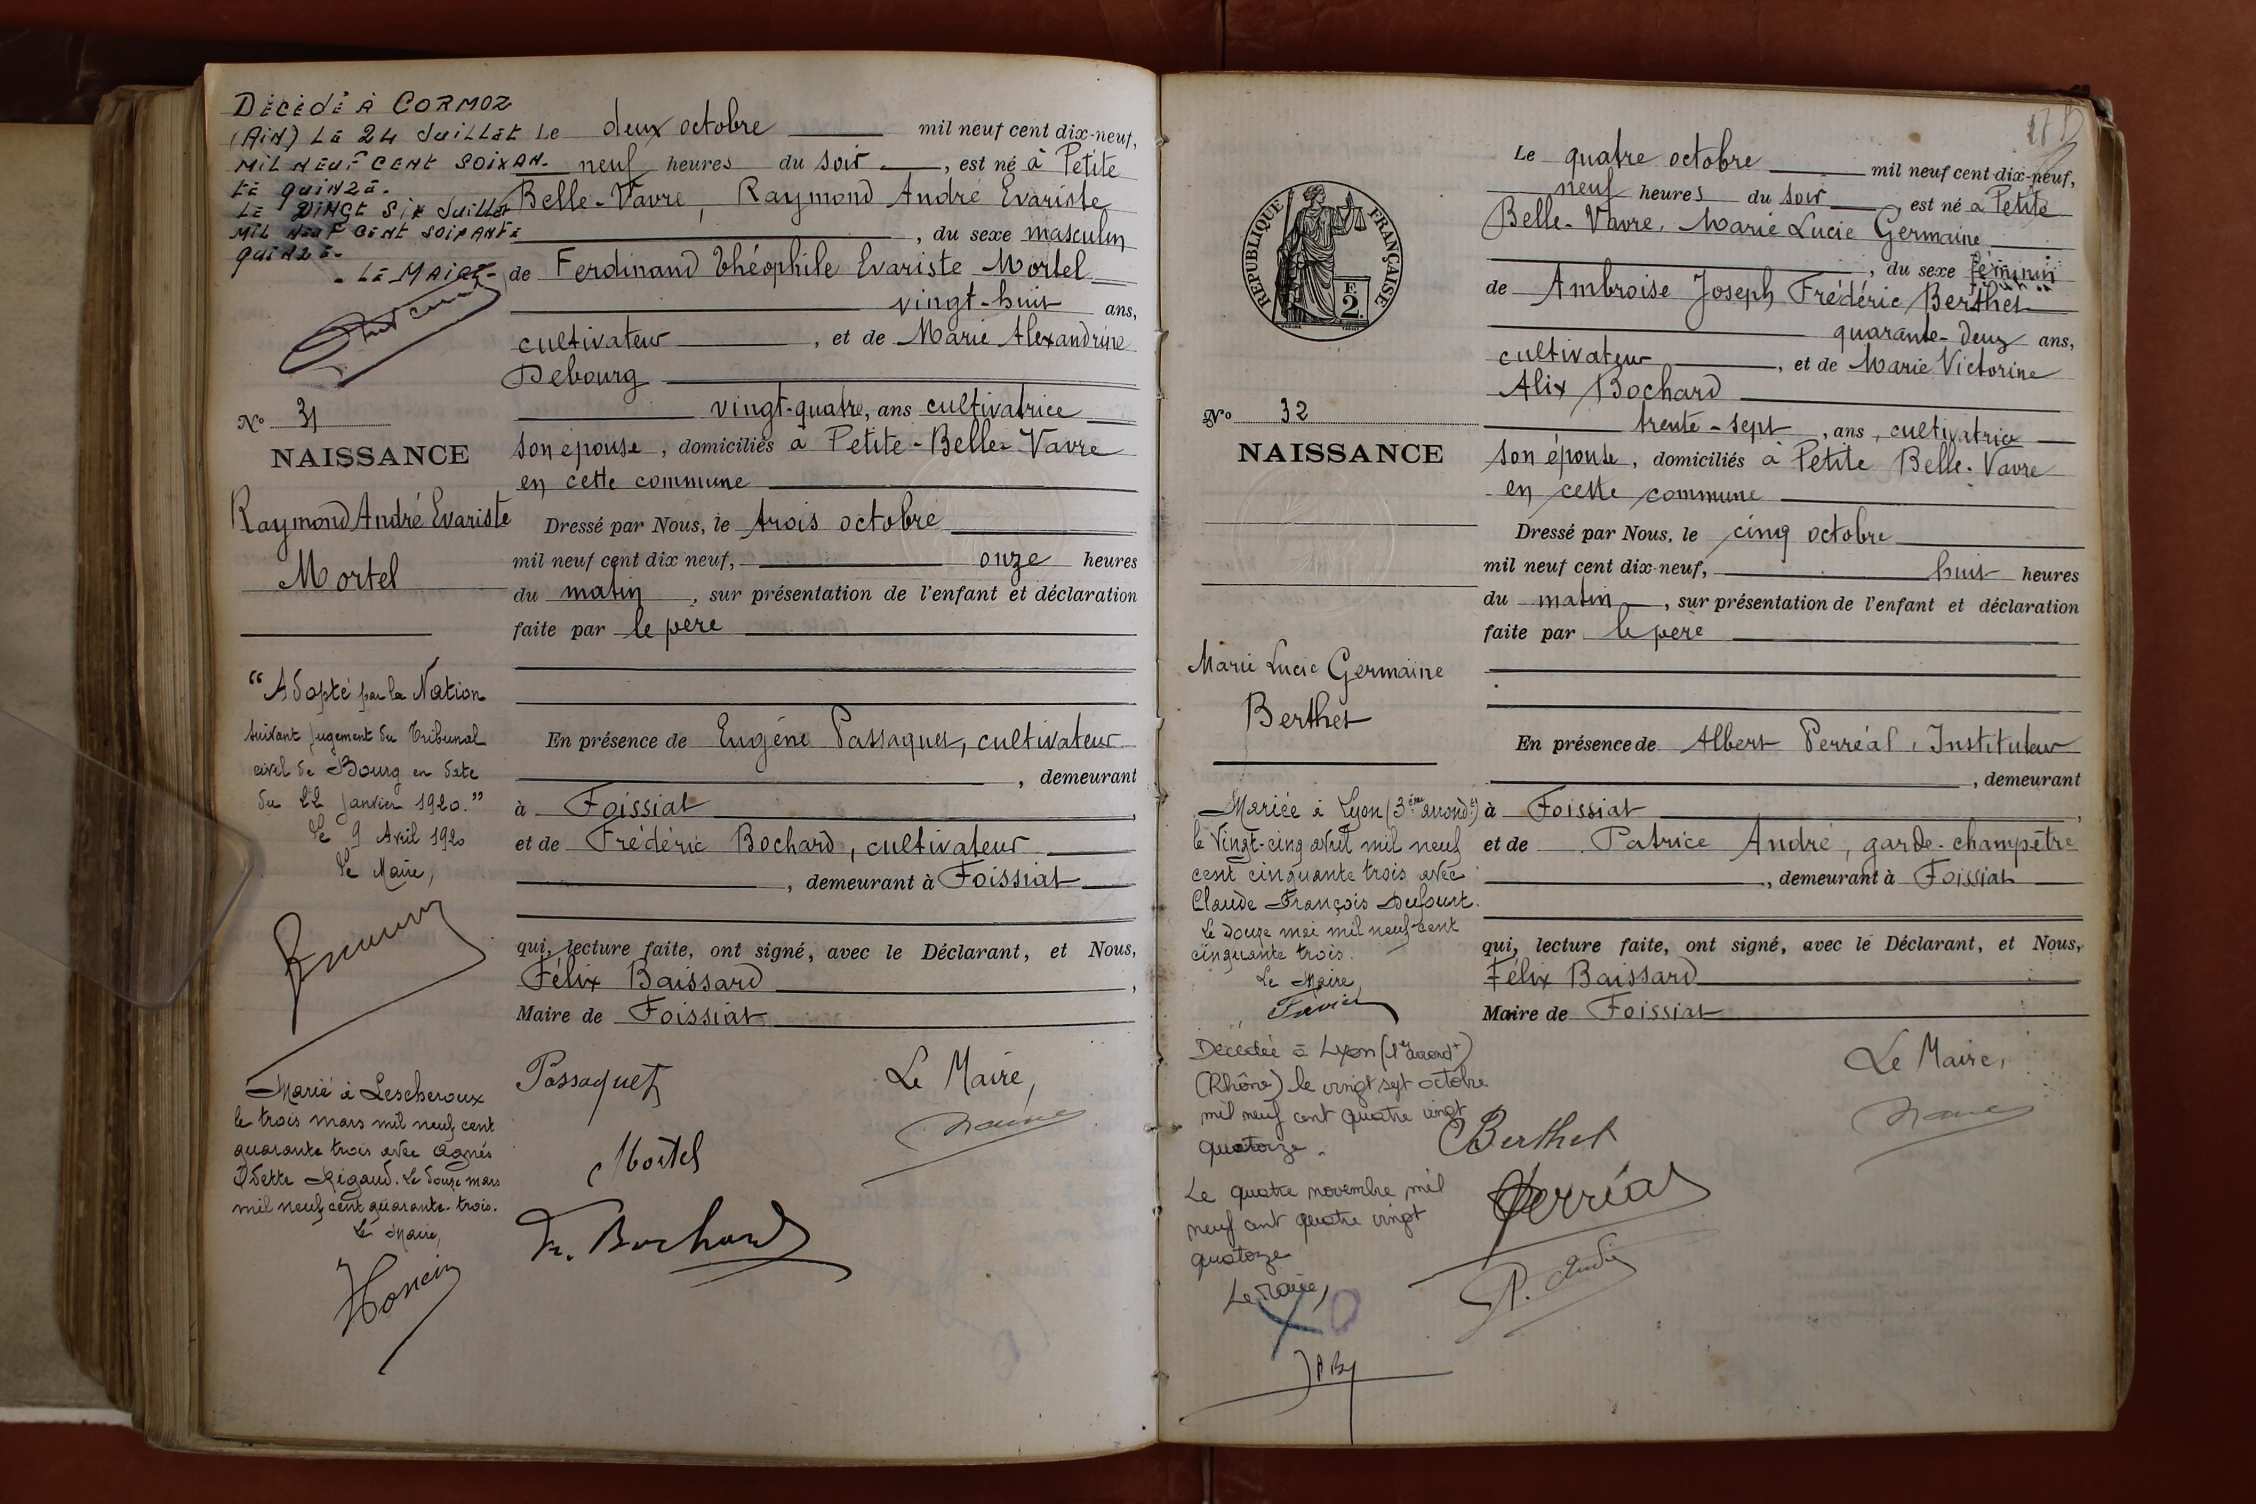 Décédé à Cormoz
(Ain) le 24 Juillet
mil neuf cent soixan-
te quinze.
Le vingt six Juillet
mil neuf cent soixante
quinze.
Le Maire
No 31
NAISSANCE
Raymond André Evariste
Mortel
"Adopté par la Nation
suivant jugement du Tribunal
civil de Bourg en date
du 22 Janvier 1920."
Le 9 Avril 1920
Le Maire,
Marié à Lescheroux
le trois mars mil neuf cent
quarante trois avec Agnès
Odette Rigaud. Le douze mars
mil neuf cent quarante-trois.
Le Maire,
Le deux octobre mil neuf cent dix-neuf,
neuf heures du soir, est né à Petite
Belle-Vavre, Raymond André Evariste
, du sexe masculin
de Ferdinand Théophile Evariste Mortel
vingt-huit ans,
cultivateur, et de Marie Alexandrine
Debourg
vingt-quatre, ans cultivatrice
son épouse, domiciliés à Petite-Belle-Vavre
en cette commune
Dressé par Nous, le trois octobre
mil neuf cent dix neuf, onze heures
du matin, sur présentation de l'enfant et déclaration
faite par le père
En présence de Eugène Passaquet, cultivateur
, demeurant
à Foissiat,
et de Frédéric Bochard, cultivateur
, demeurant à Foissiat
qui, lecture faite, ont signé, avec le Déclarant, et Nous,
Félix Baissard,
Maire de Foissiat
Passaquet
Le Maire,
Mortel
Fr. Bochard
No 32
NAISSANCE
RÉPUBLIQUE FRANÇAISE
E
2.
Marie Lucie Germaine
Berthet
Mariée à Lyon (3ème arrondt)
le vingt-cinq avril mil neuf
cent cinquante trois avec
Claude François Dufour.
Le douze mai mil neuf cent
cinquante trois.
Le Maire,
Décédée à Lyon (1er arrondt)
(Rhône) le vingt sept octobre
mil neuf cent quatre vingt
quatorze.
Le quatre novembre mil
neuf cent quatre vingt
quatorze
Le Maire,
Le quatre octobre mil neuf cent dix-neuf,
neuf heures du soir, est né à Petite
Belle-Vavre, Marie Lucie Germaine
, du sexe féminin
de Ambroise Joseph Frédéric Berthet
quarante-deux ans,
cultivateur, et de Marie Victorine
Alix Bochard
trente-sept, ans, cultivatrice
son épouse, domiciliés à Petite Belle-Vavre
en cette commune
Dressé par Nous, le cinq octobre
mil neuf cent dix-neuf, huit heures
du matin, sur présentation de l'enfant et déclaration
faite par le père
En présence de Albert Perréal, Instituteur
, demeurant
à Foissiat,
et de Patrice André, garde-champêtre
, demeurant à Foissiat
qui, lecture faite, ont signé, avec le Déclarant, et Nous,
Félix Baissard
Maire de Foissiat
Le Maire,
Berthet
Perréal
P. André